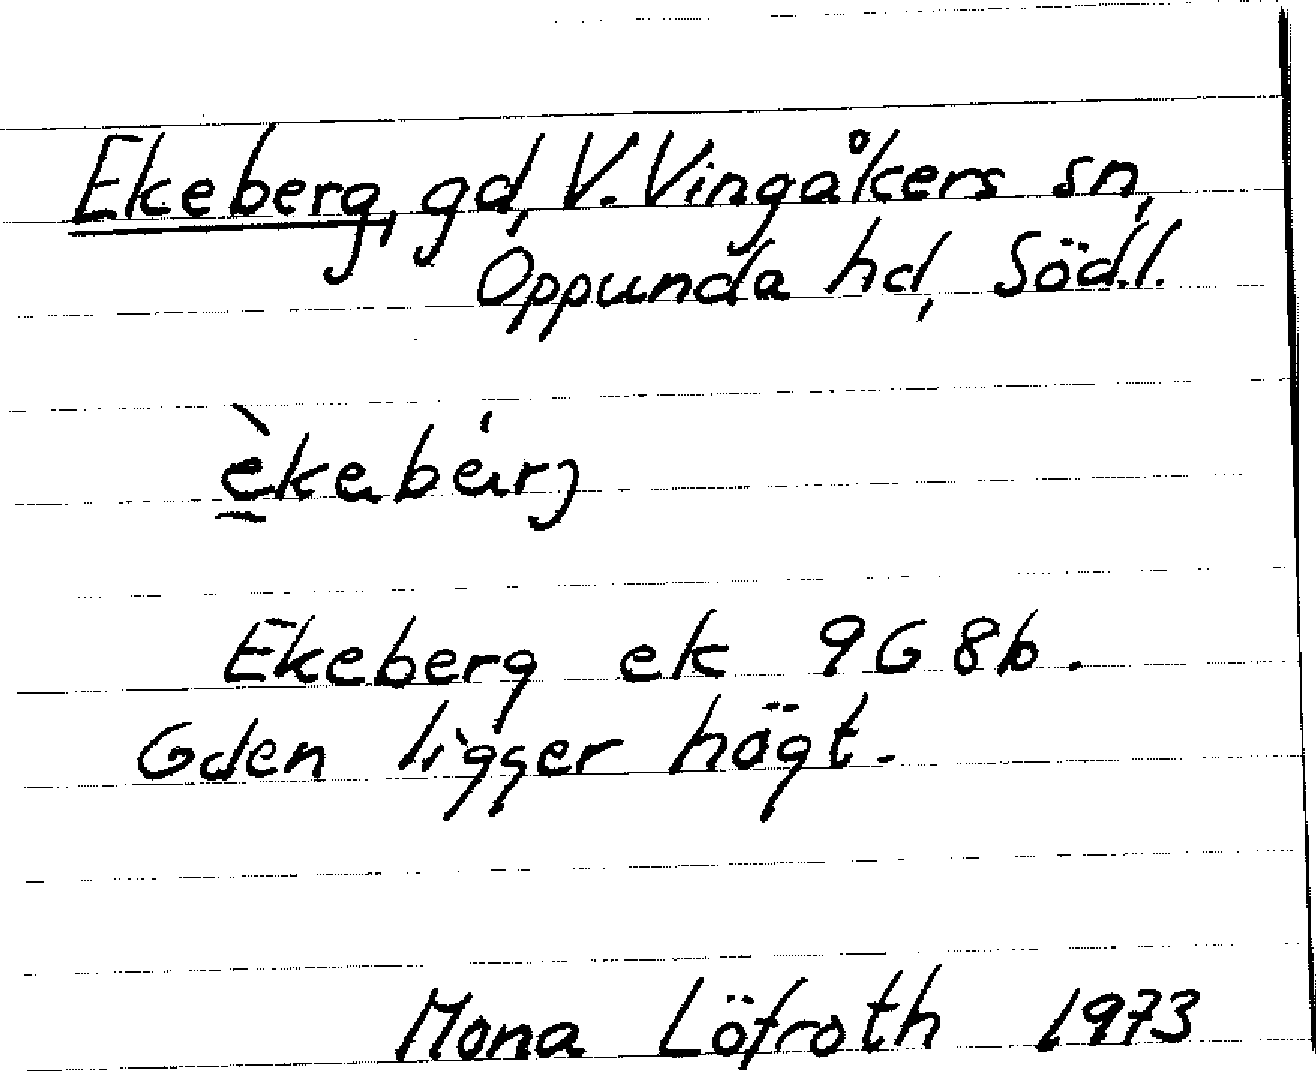 Ekeberg, gd, V. Vingåkers sn,
Oppunda hd, Södl.
èkebérj
Ekeberg ek 9G 8b.
Gden ligger högt.
Mona Löfroth 1973